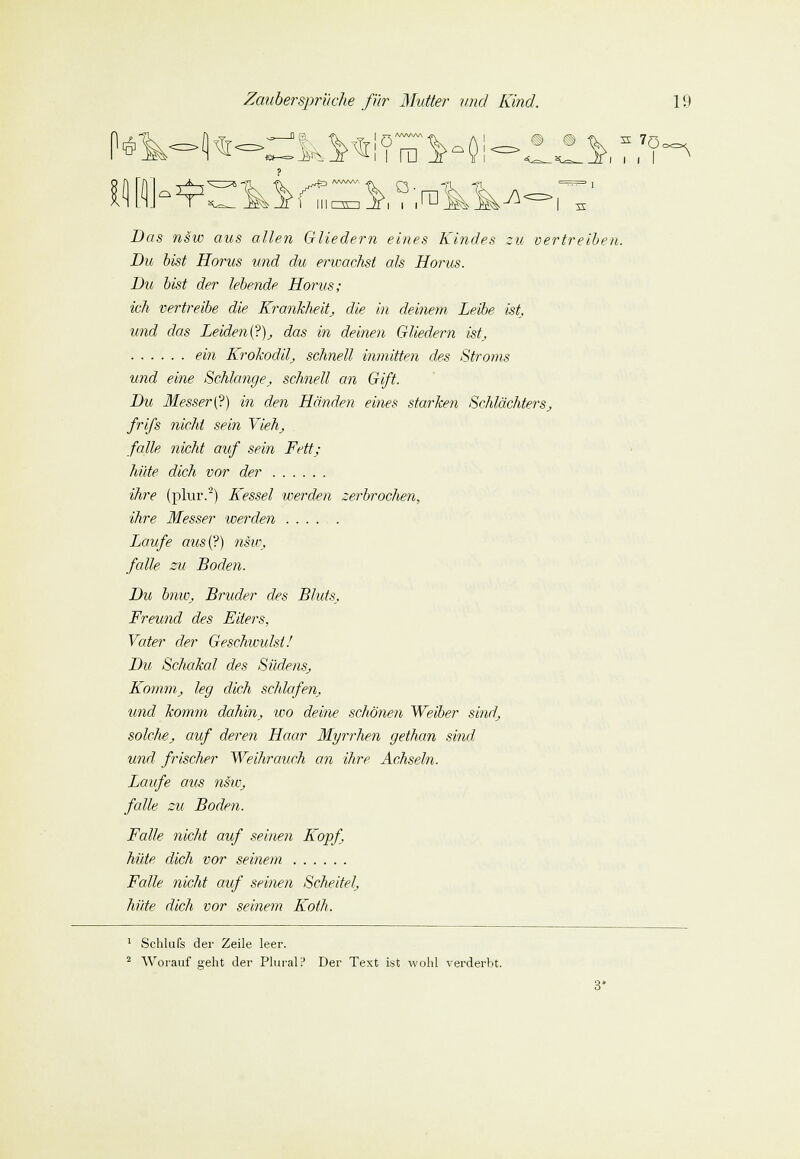 Zaubersprüche für Mutter und Kind. 19
Das nšw aus allen Gliedern eines Kindes zu vertreiben.
Du bist Horus und du erwachst als Horus.
Du bist der lebende Horus;
ich vertreibe die Krankheit, die in deinem Leibe ist,
und das Leiden(?), das in deinen Gliedern ist,
...... ein Krokodil, schnell inmitten des Stroms
und eine Schlange, schnell an Gift.
Du Messer(?) in den Händen eines starken Schlächters,
friſs nicht sein Vieh,
falle nicht auf sein Fett;
hüte dich vor der ......
ihre (plur.²) Kessel werden zerbrochen,
ihre Messer werden .....
Laufe aus(?) nšw,
falle zu Boden.
Du bnw, Bruder des Bluts,
Freund des Eiters,
Vater der Geschwulst!
Du Schakal des Südens,
Komm, leg dich schlafen,
und komm dahin, wo deine schönen Weiber sind,
solche, auf deren Haar Myrrhen gethan sind
und frischer Weihrauch an ihre Achseln.
Laufe aus nšw,
falle zu Boden.
Falle nicht auf seinen Kopf,
hüte dich vor seinem ......
Falle nicht auf seinen Scheitel,
hüte dich vor seinem Koth.
¹ Schluſs der Zeile leer.
² Worauf geht der Plural? Der Text ist wohl verderbt.
3*